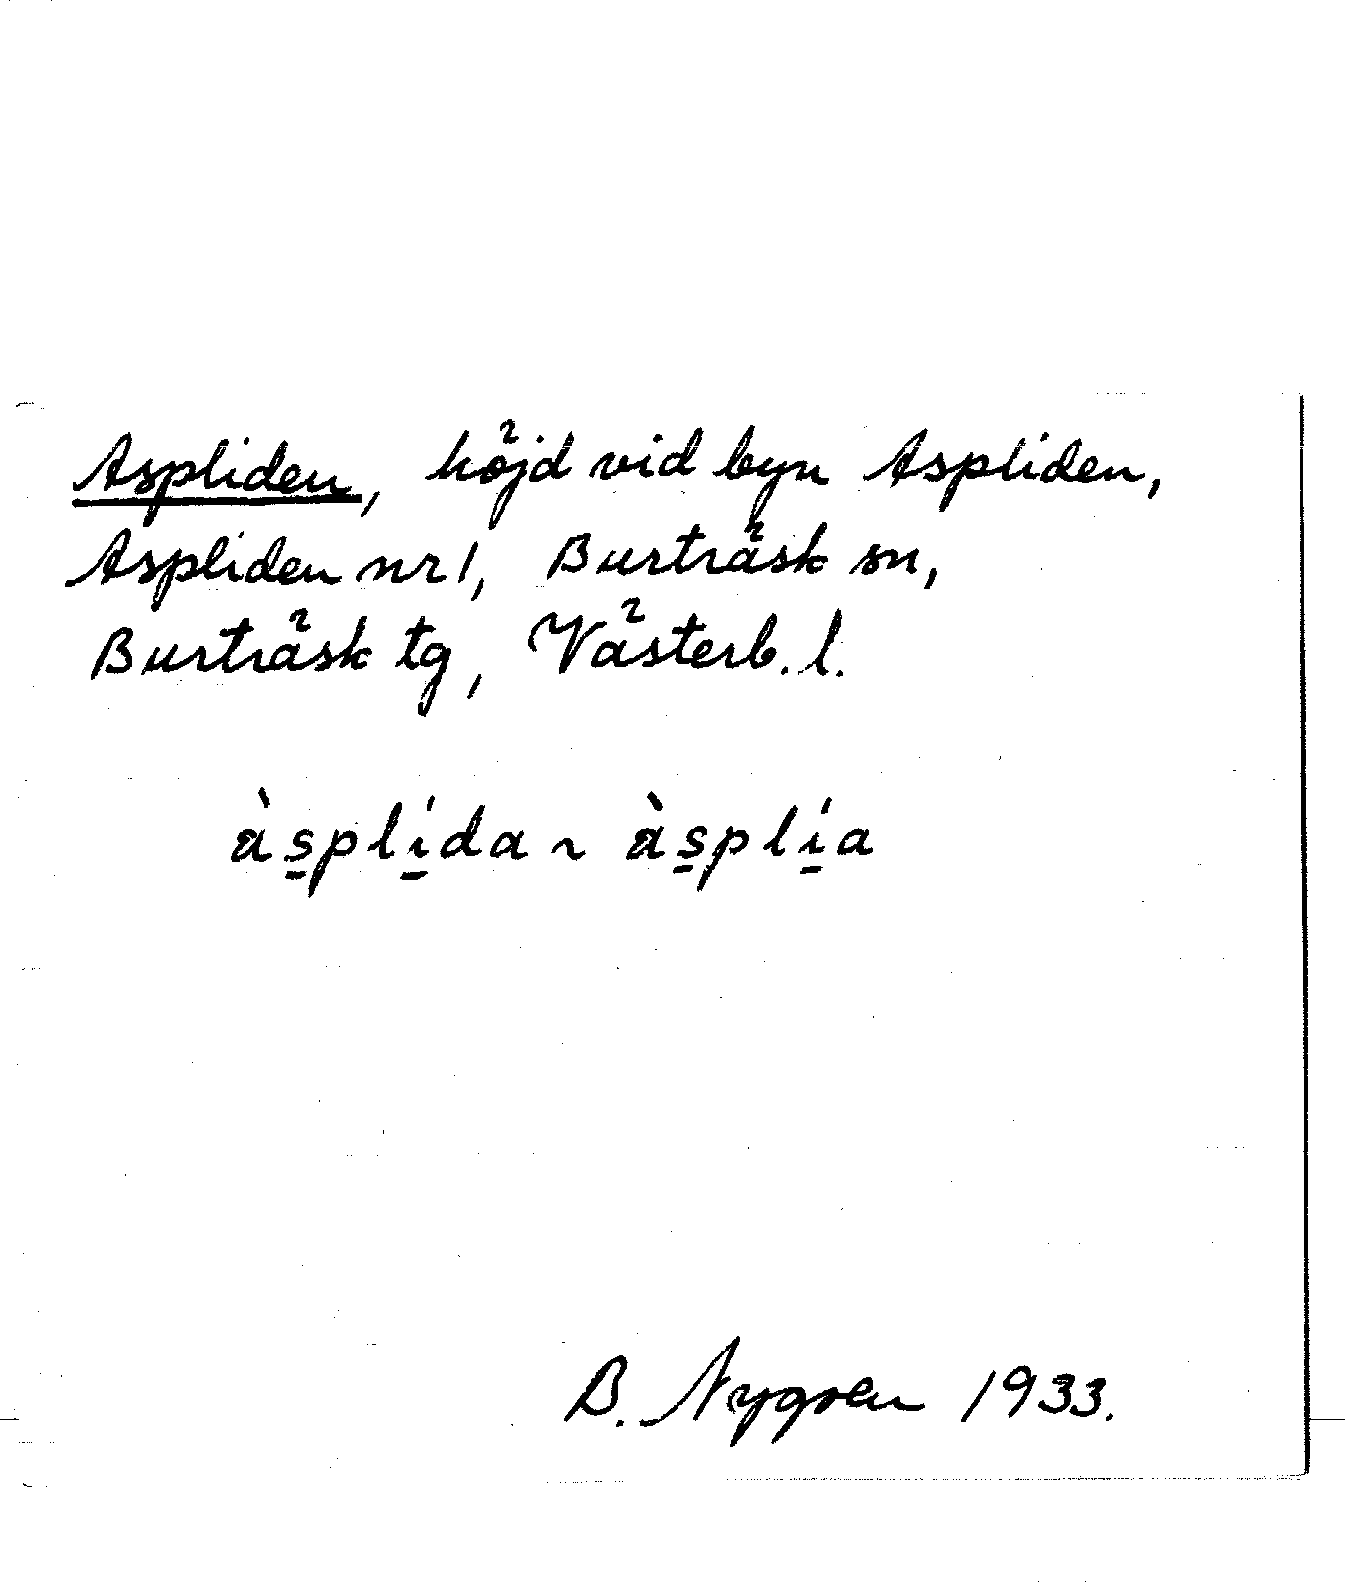 Aspliden, höjd vid byn Aspliden,
Aspliden nr 1, Burträsk sn,
Burträsk tg, Västerb. l.
às̱plí̱da ~ às̱plí̱a
B. Nygren 1933.